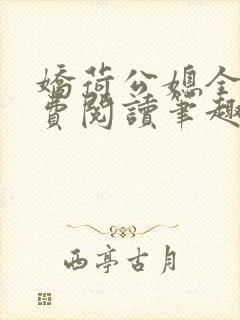 嬌荷公媳全
費閱讀筆趣
西亭古月